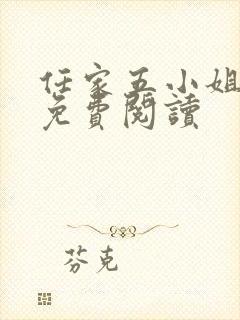 任家五小姐
免費閱讀
芬克